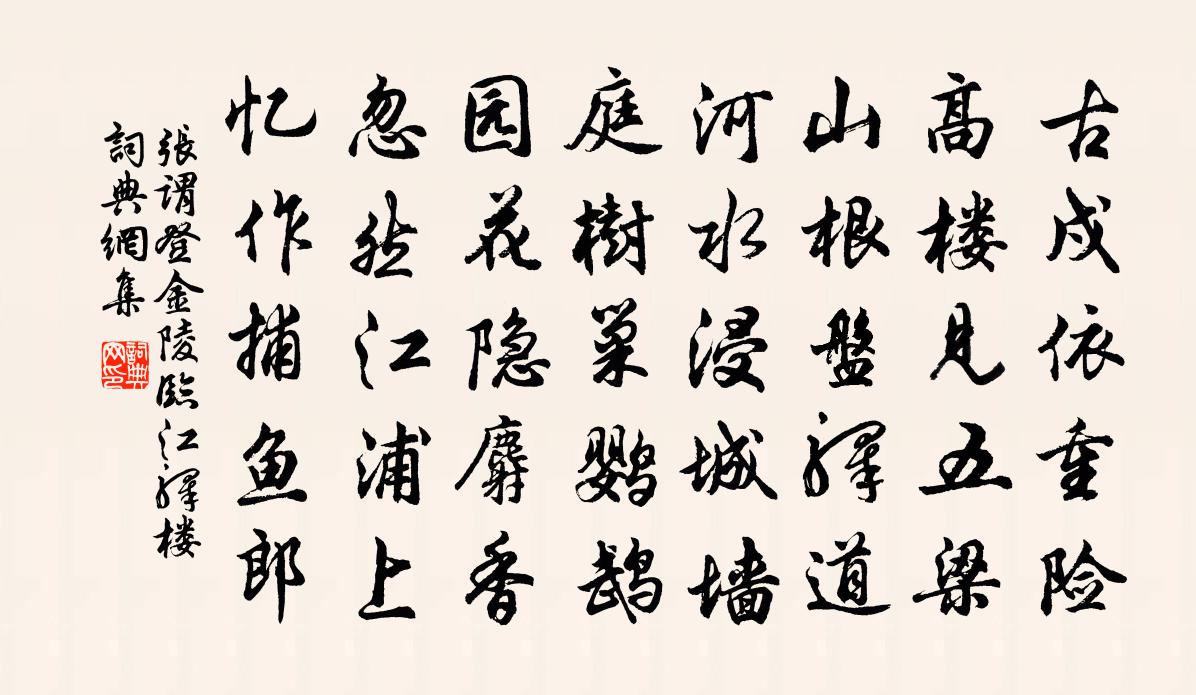 古戍依重险
高楼见五梁
山根盘驿道
河水浸城墙
庭樹巢鹦鹉
园花隐麝香
忽然江浦上
忆作捕鱼郎
張谓登金陵臨江驛楼
詞典網集
詞典网印